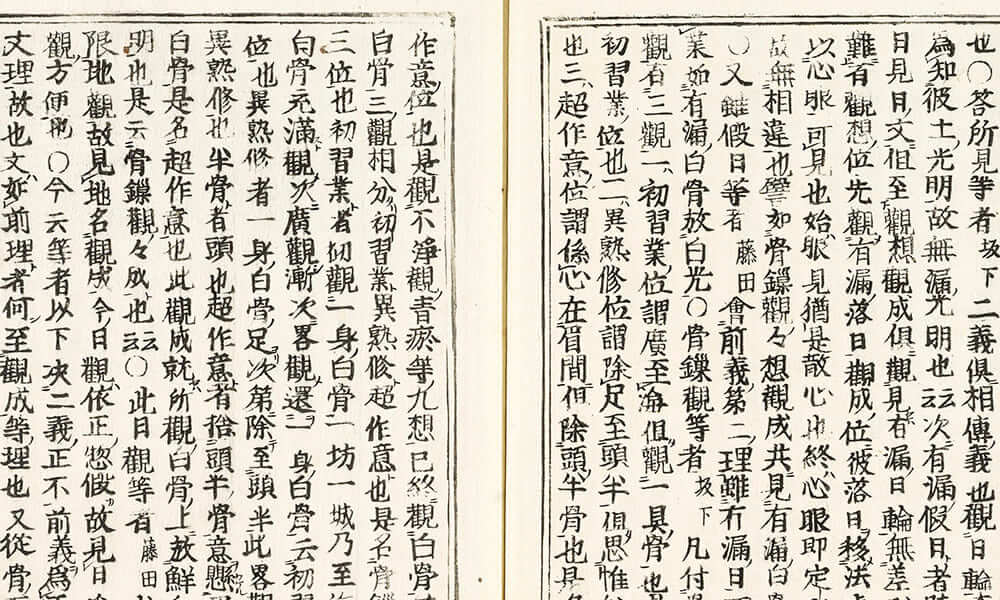 也〇答所見等者坂下二義俱相傳義也觀日輪
為知彼土光明故無漏光明也云云次有漏假日者
日見日文但至觀想觀成俱觀見有漏日輪無差
難有觀想位先觀有漏落日觀成位彼落日移法
以心眼可見也始眼見猶是散心也終心眼即定
故無相違也譬如骨鏁觀々想觀成共見有漏白
〇又雖假日等者藤田會前義第二理雖有漏日
業如有漏白骨放白光〇骨鏁觀等者坂下凡付
觀有三觀一初習業位謂廣至海俱觀一具骨也
初習業位也二異熟修位謂除足至頭半俱思惟
也三超作意位謂係心在眉間但除頭半骨也是
作意位也是觀不淨觀青瘀等九想已終觀白骨
白骨三觀相分初習業異熟修超作意也是名骨
三位也初習業者初觀一身白骨一坊一城乃至
白骨充滿觀次廣觀漸次畧觀還一身白骨云初
位也異熟修者一身白骨足次第除至頭半此畧觀
異熟修也半骨者頭也超作意者捨頭半骨意懸
白骨是名超作意也此觀成就所觀白骨上放鮮
明也是云骨鏁觀々成也云云〇此日觀等者藤田
限地觀故見地名觀成今日觀依正惣假故見日
觀方便也〇今云等者以下決二義正不前義為
文理故也文如前理者何至觀成等理也又從骨